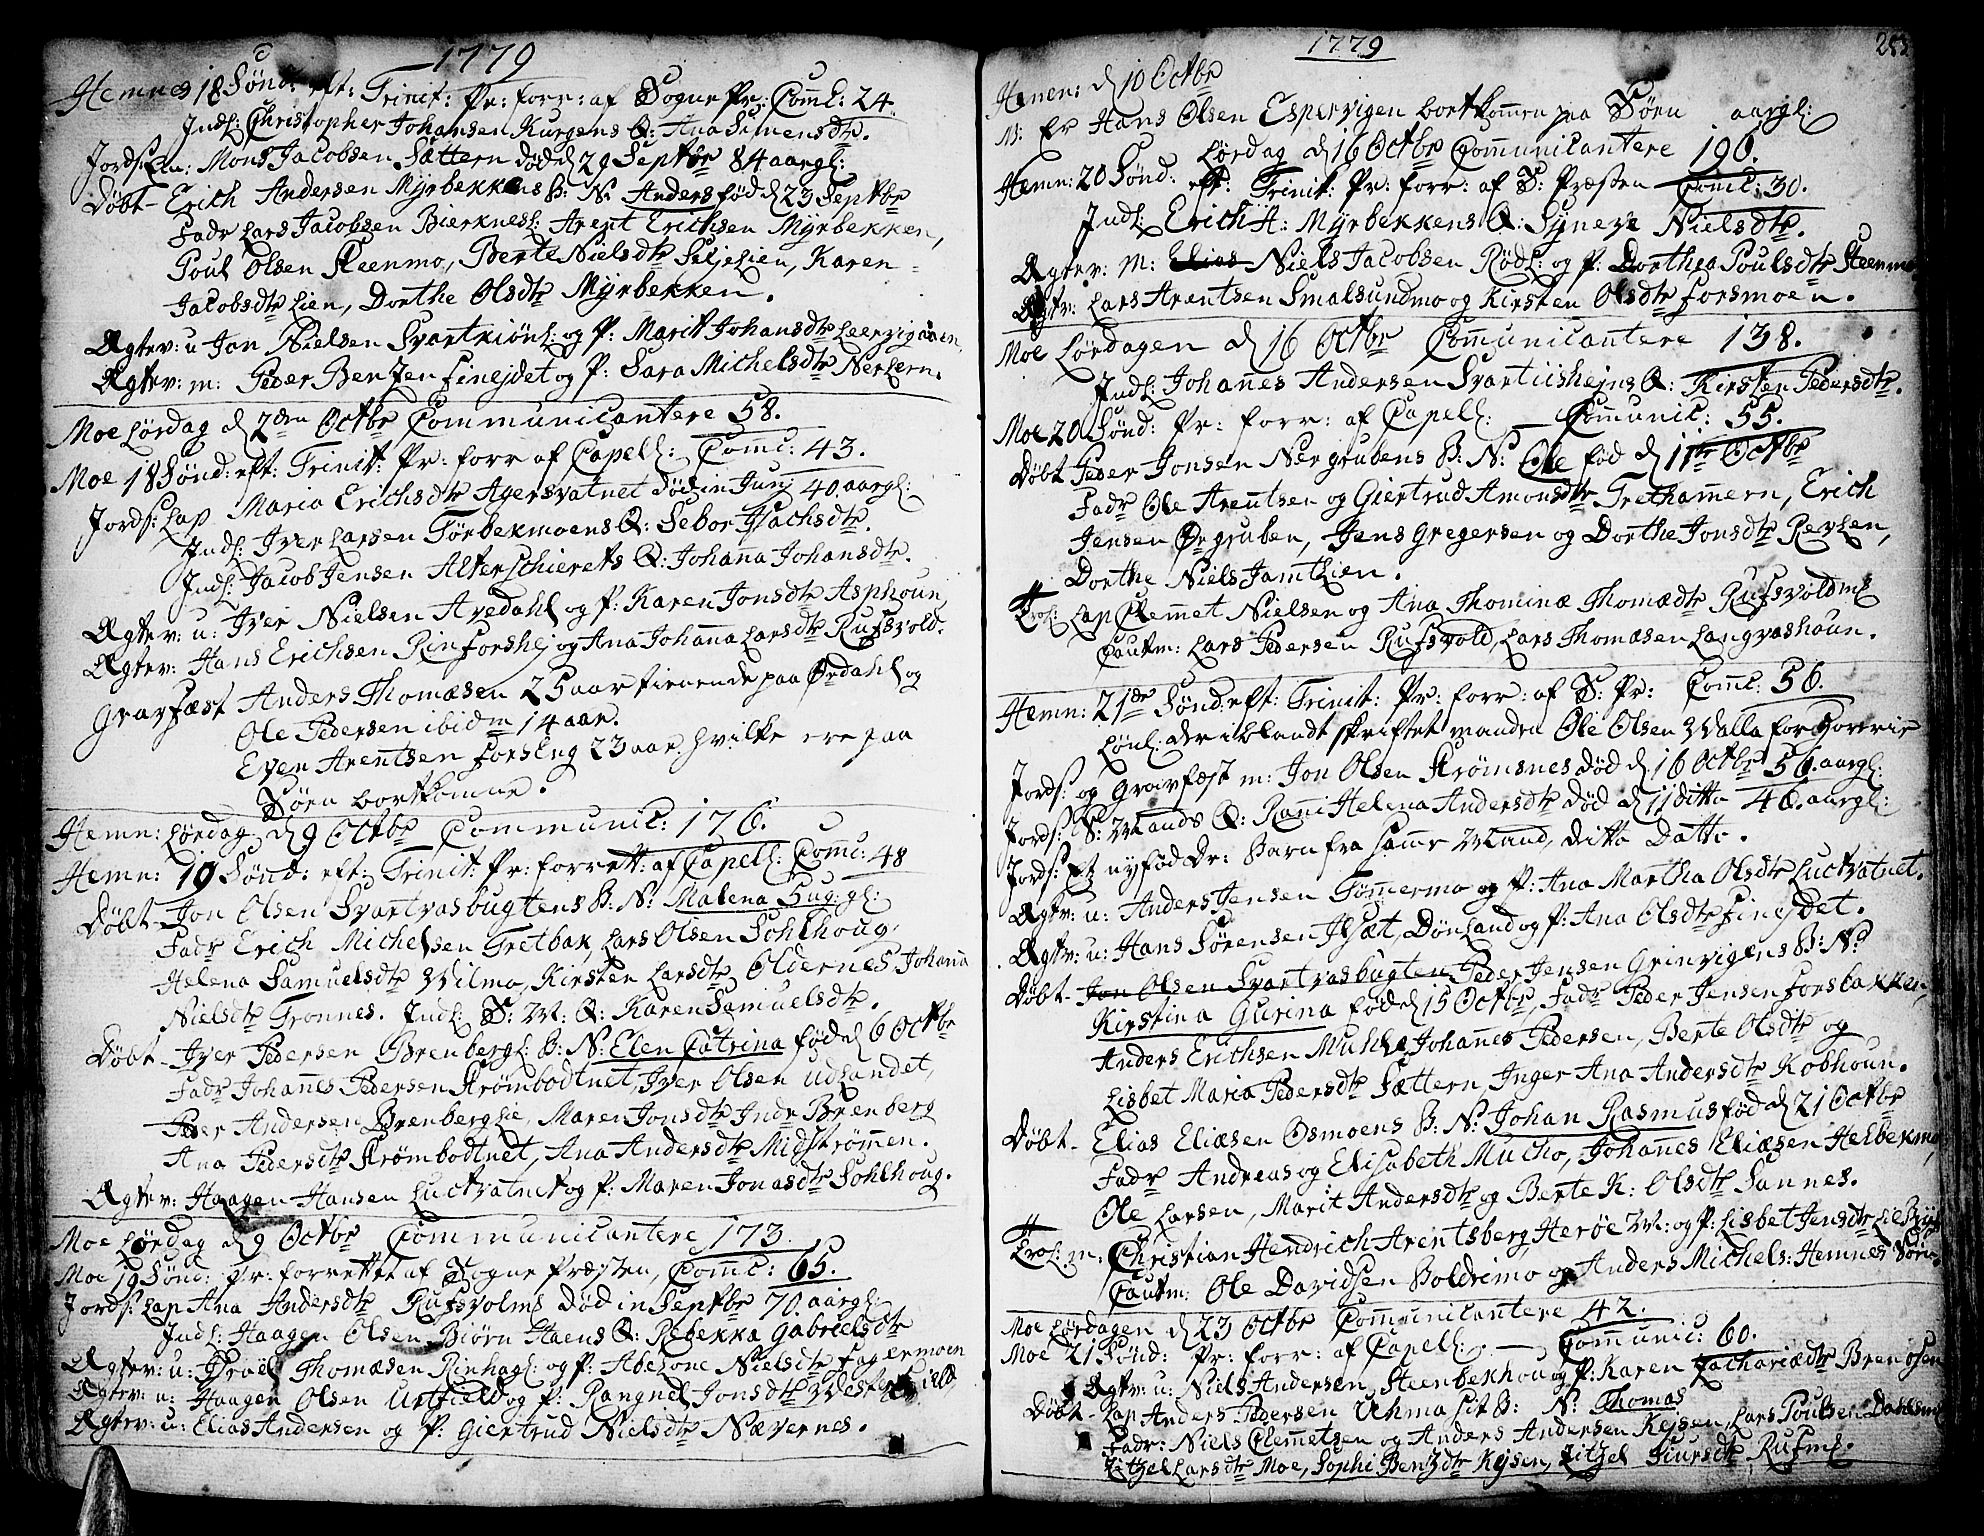 1779
Hemnes 18 Sønd: eft: Trinit: Pr: forr: af Sogne Pr: Com̄l: 24.
Indl: Christopher Johansen Kurgens Q: Ana Simensdtr.
Jords: Em: Mons Jacobsen Sættern død d 29 Septbr 84 aargl:
Døbt - Erich Andersen Myrbekkens B: N: Anders fød d 23 Septbr
Fadr Lars Jacobsen Bierknesl: Arent Erichsen Myrbekken,
Poul Olsen Steenmo, Berte Nielsdtr Seljelien, Karen
Jacobsdtr Lien, Dorthe Olsdtr Myrbekken.
Ægtev: u Jon Nielsen Svartkiønl: og P: Marit Johansdtr Leervigaaen,
Ægtev: m: Peder Bentzen Finejdet og P: Sara Michelsdtr Nerlern.
Moe Lørdag d 2den Octbr Communicantere 58.
Moe 18 Sønd: eft: Trinit: Pr: forr af Capell: Com̄l: 43.
Jords: Lap Maria Erichsdtr Agersvatnet død in Junj 40 aargl:
Indl: Iver Larsen Tørbekmoens Q: Sebor Isachsdtr.
Indl: Jacob Jensen Alterschierets Q: Johan̄a Johansdtr.
Ægtev: u: Iver Nielsen Avedahl og P: Karen Jonsdtr Asphoun
Ægtev: Hans Erichsen Rinforshej og Ana Johan̄a Larsdtr Rufsvold.
Gravfæst Anders Thomæsen 25 aar tienende paa Ørdahl og
Ole Pedersen ibidm 14 aar.
Even Arentsen Forsling 23 aar. hvilke ere paa
Søen bortkomne.
Hemn: Lørdag d 9 Octbr Communic: 176.
Hemn: 19 Sønd: eft: Trinit: Pr: forrett: af Capell: Com̄c: 48
Døbt - Jon Olsen Svartvasbugtens B: N: Malena 5 ug: gl:
Fadr Erich Michelsen Tretbak, Lars Olsen Sohlhoug,
Helena Samuelsdtr Wilmo, Kirsten Larsdtr Oldernes, Johan̄a
Nielsdtr Tronnes. Indl: S: M: Q: Karen Samuelsdtr.
Døbt - Iver Pedersen Brenbergl: B: N: Elen Catrina fød d 6 Octbr
Fadr Johan̄es Pedersen Strømbodtnet, Iver Olsen Udlandet,
Peder Andersen Brenberglie, Maren Jonsdtr Indr Brenberg
Ana Pedersdtr Strømbodtnet, Ana Andersdtr Midstrøm̄en.
Ægtev: Haagen Hansen Luctvatnet og P: Maren Jonasdtr Sohlhoug.
Moe Lørdag d 9 Octbr Communicantere 173.
Moe 19 Sønd: Pr: forrettet af Sogne Præsten, Com̄l: 65.
Jords: Lap Ana Andersdtr Rufsvolms død in Septbr 70 aargl:
Indl: Haagen Olsen Biørn Haens Q: Rebekka Gabrielsdtr
Ægtev: u: Israel Thomæsen Rinhagl: og P: Abelone Nielsdtr Fagermoen
Ægtev: u: Haagen Olsen Urtfield og P: Rangnel Jonsdtr Westerfield
Ægtev: u: Elias Andersen og P: Giertrud Nielsdtr Nævernes.
1779
Hemn: d 10 Octbr
M: Er Hans Olsen Espervigen bortkom̄en paa Søen aargl:
Lørdag d 16 Octbr Com̄unicantere 190.
Hemn: 20 Sønd: eft: Trinit: Pr: forr: af S: Præsten Com̄l: 30.
Indl: Erich A: Myrbekkens Q: Synere Nielsdtr.
Ægtev: M: Elias Niels Jacobsen Rødl: og P: Dorthea Poulsdtr Steenmo
Ægtv: Lars Arentsen Smalsundmo og Kirsten Olsdtr Forsmoen.
Moe Lørdagen d 16 Octbr Com̄unicantere 138.
Indl: Johan̄es Andersen Svartiishejns Q: Kirsten Pedersdtr.
Moe 20 Sønd: Pr: forr: af Capell: Com̄unic: 55.
Døbt Peder Jonsen Nergrubens B: N: Ole fød d 11te Octbr
Fadr Ole Arentsen og Giertrud Amonsdtr Trethamern, Erich
Jensen Ørgruben, Jens Gregersen og Dorthe Jonsdtr Revlen,
Dorthe Niels Jamtlien.
Trol: Lap Clem̄et Nielsen og Ana Thominæ Thomædtr Rufsvoldml
Cautm: Lars Pedersen Rufsvold, Lars Thomæsen Langvashoun.
Hemn: 21de Sønd: eft: Trinit: Pr: forr: af S: Pr: Com̄l: 56.
Lønl: der iblandt skriftet manden Ole Olsen Walla for Horerie
Jords: og Gravfæst m: Jon Olsen Strømsnes død d 16 Octbr 56 aargl:
Jords: S: Mands Q: Rani Helena Andersdtr død d 11 ditto 46 aargl:
Jords: Et nyfød dr: Barn fra Sam̄e Mand, ditto Datto.
Ægtv: u: Anders Jensen Tøm̄ermo og P: Ana Martha Olsdtr Luctvatnet.
Ægtv: u: Hans Sørensen Ilsæt, Dønland og P: Ana Olsdtr Finejdet.
Døbt - Jon Olsen Svartvasbugten Peder Jensen Grinvigens B: N:
Kirstina Gurina fød d 15 Octbr, Fadr Peder Jensen Forsbakken,
Anders Erichsen Muhle, Johan̄es Pedersen, Berte Olsdtr og
Lisbet Maria Pedersdtr Sættern, Inger Ana Andersdtr Kobhoun.
Døbt - Elias Eliæsen Osmoens B: N: Johan Rasmus fød d 21 Octbr
Fadr Andreas og Elisabeth Mucho, Johan̄es Eliæsen Helbekmo,
Ole Larsen, Marit Andersdtr og Berte K: Olsdtr Sannes.
Trol: m: Christian Hendrich Arentsberg Herøe M: og P: Lisbet Jensdtr
Cautm: Ole Davidsen Boldremo og Anders Michels: Hemnes Søen.
Moe Lørdagen d 23 Octbr Com̄unicantere 42.
Moe 21 Sønd: Pr: forr: af Capell: Com̄unic: 60.
Ægtev: u: Niels Andersen Steenbekhou og P: Karen Zachariædtr Brenøsen
Døbt - Lap Anders Pedersen Uhma sit B: N: Thomas
Fadr: Niels Clem̄etsen og Anders Andersen Kejsen, Lars Poulsen
Zitzel Larsdtr Moe, Sophi Bentzdtr Kejsen, Zitzel Siursdtr Rufml.